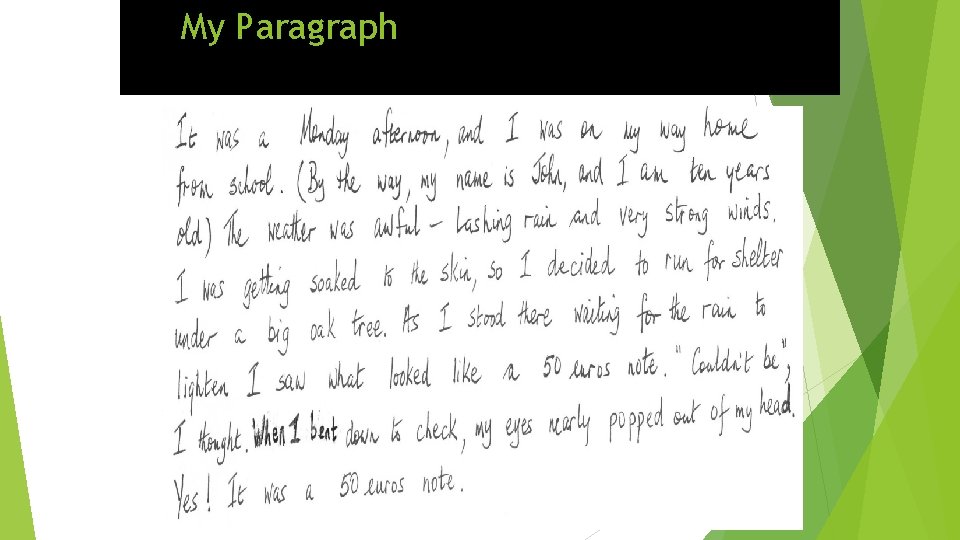 My Paragraph
It was a Monday afternoon, and I was on my way home
from school. (By the way, my name is John, and I am ten years
old) The weather was awful – Lashing rain and very strong winds.
I was getting soaked to the skin, so I decided to run for shelter
under a big oak tree. As I stood there waiting for the rain to
lighten I saw what looked like a 50 euros note. "Couldn't be",
I thought. When I bent down to check, my eyes nearly popped out of my head.
Yes! It was a 50 euros note.